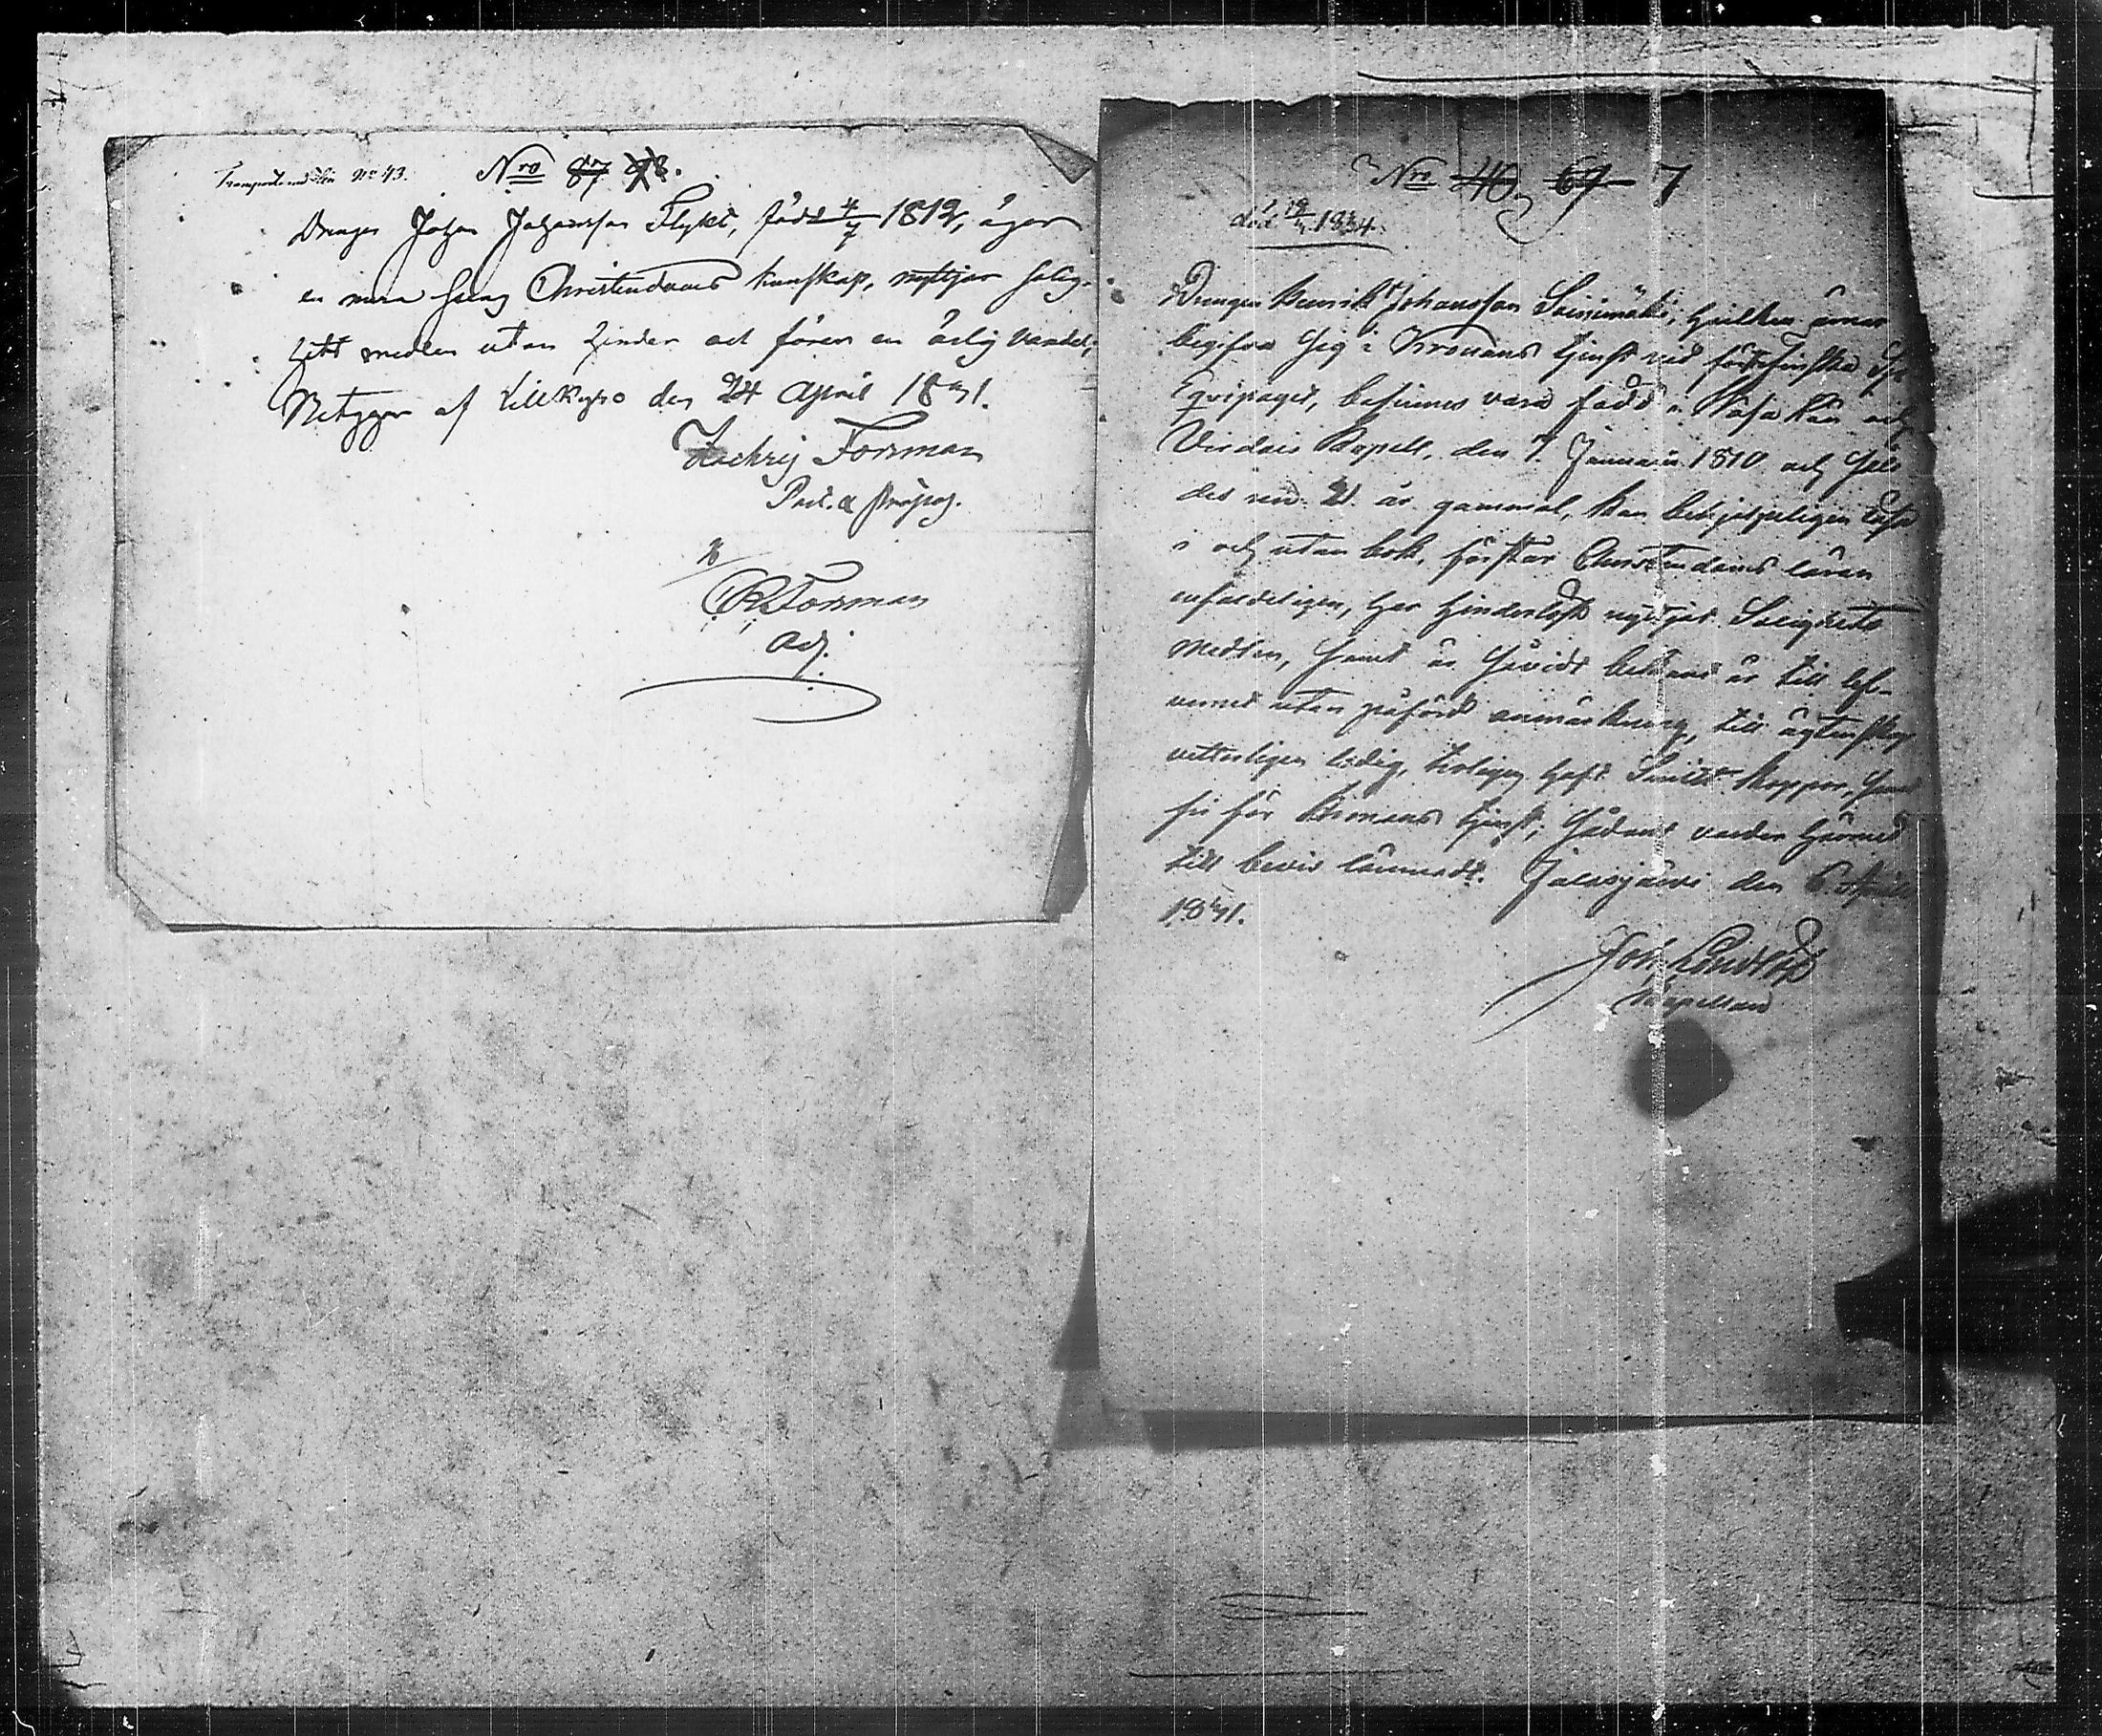 Transporterad från No 43.
Nro 87 93.
Drengen Johan Johansson Flykt, född 4/7 1812, äger
en mera svag Christendoms kunskap, nyttjar salig-
hets medlen utan hinder och förer en ärlig vandel;
Betygar af Lillkyro den 24 April 1831.
Zachris Forsman
Past. & præpos.
CRForsman
Adj.
Nro 40 67 7
död 1834.
Drengen Henrik Johansson Leinimäki, hvilken ämnar
begifva sig i Kronans tjenst vid första finska Sjö
Equipaget, befinnes vara född i Wasa Län och
Virdois Kapell, den 7 Januari 1810 och således
vid 21 år gammal, kan behjelpeligen läsa
i och utan bok, förstår Christendoms läran
enfaldeligen, har hinderlöst nyttjat Salighets
medlen, samt är såvidt bekant är till lef-
vernet utan påförd anmärkning, till ägtenskap
vetterligen ledig, troligen haft Smitt Koppor, samt
fri för Kronans tjenst; Sådant varder härmed
till bevis lämnadt. Jalasjärvi den 6 April
1831.
Joh.
Kapellan